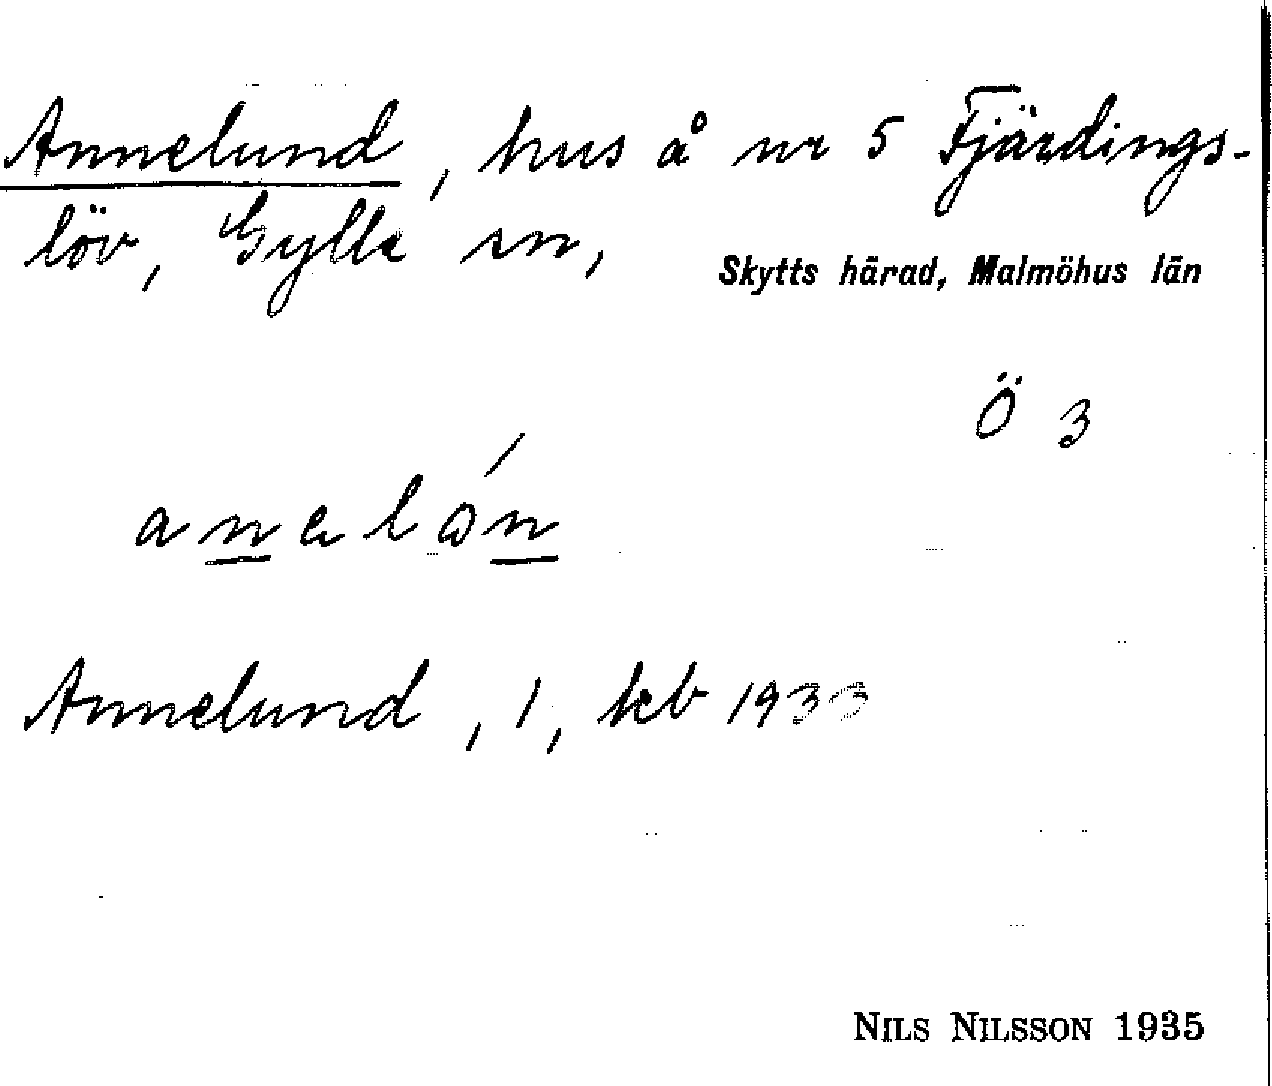 Annelund, hus å nr 5 Fjärdings-
löv, Gylle sn,
Skytts härad, Malmöhus län
Ö 3
anəlón
Annelund, 1, kb 1933
NILS NILSSON 1935